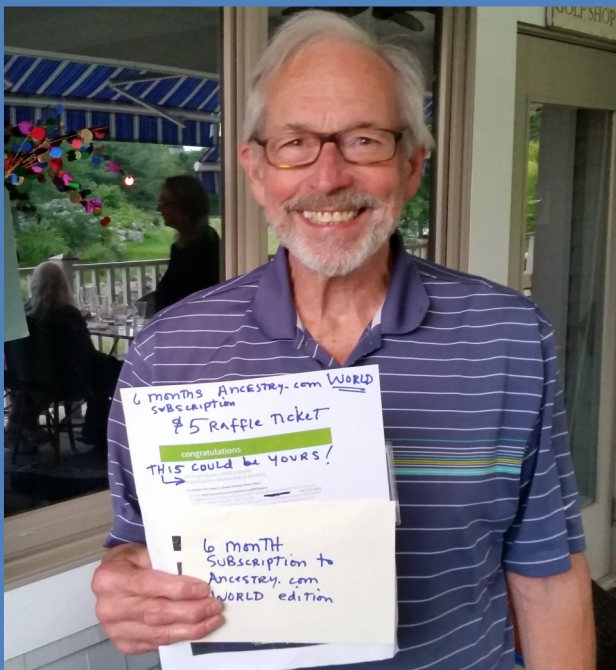 GOLF SHOP
6 MONTHS ANCESTRY.COM WORLD
SUBSCRIPTION
$5 RAFFLE TICKET
congratulations
THIS COULD be YOURS!
6 MONTH
SUBSCRIPTION to
ANCESTRY.COM
WORLD edition